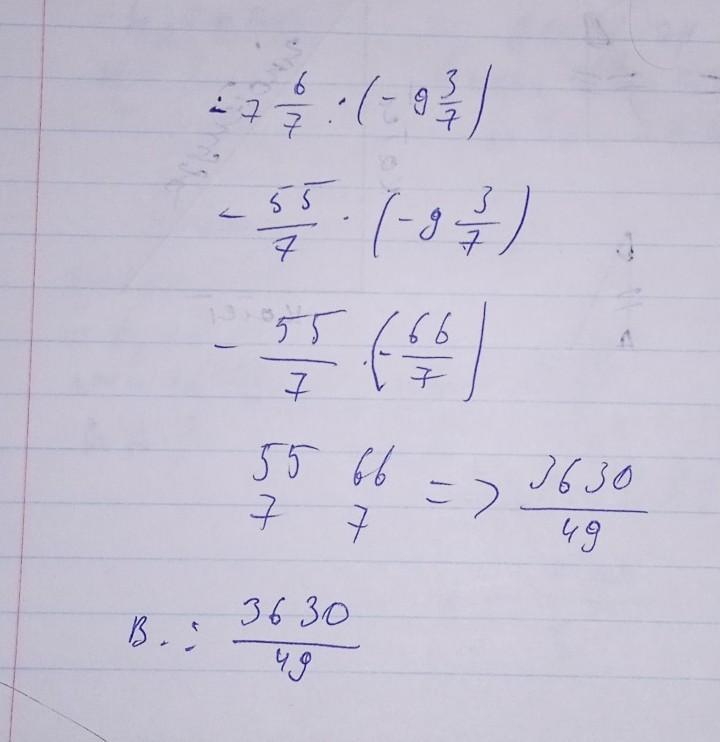 - 7 6/7 · (- 9 3/7)
- 55/7 · (- 9 3/7)
- 55/7 · (- 66/7)
55/7 66/7 => 3630/49
B. : 3630/49